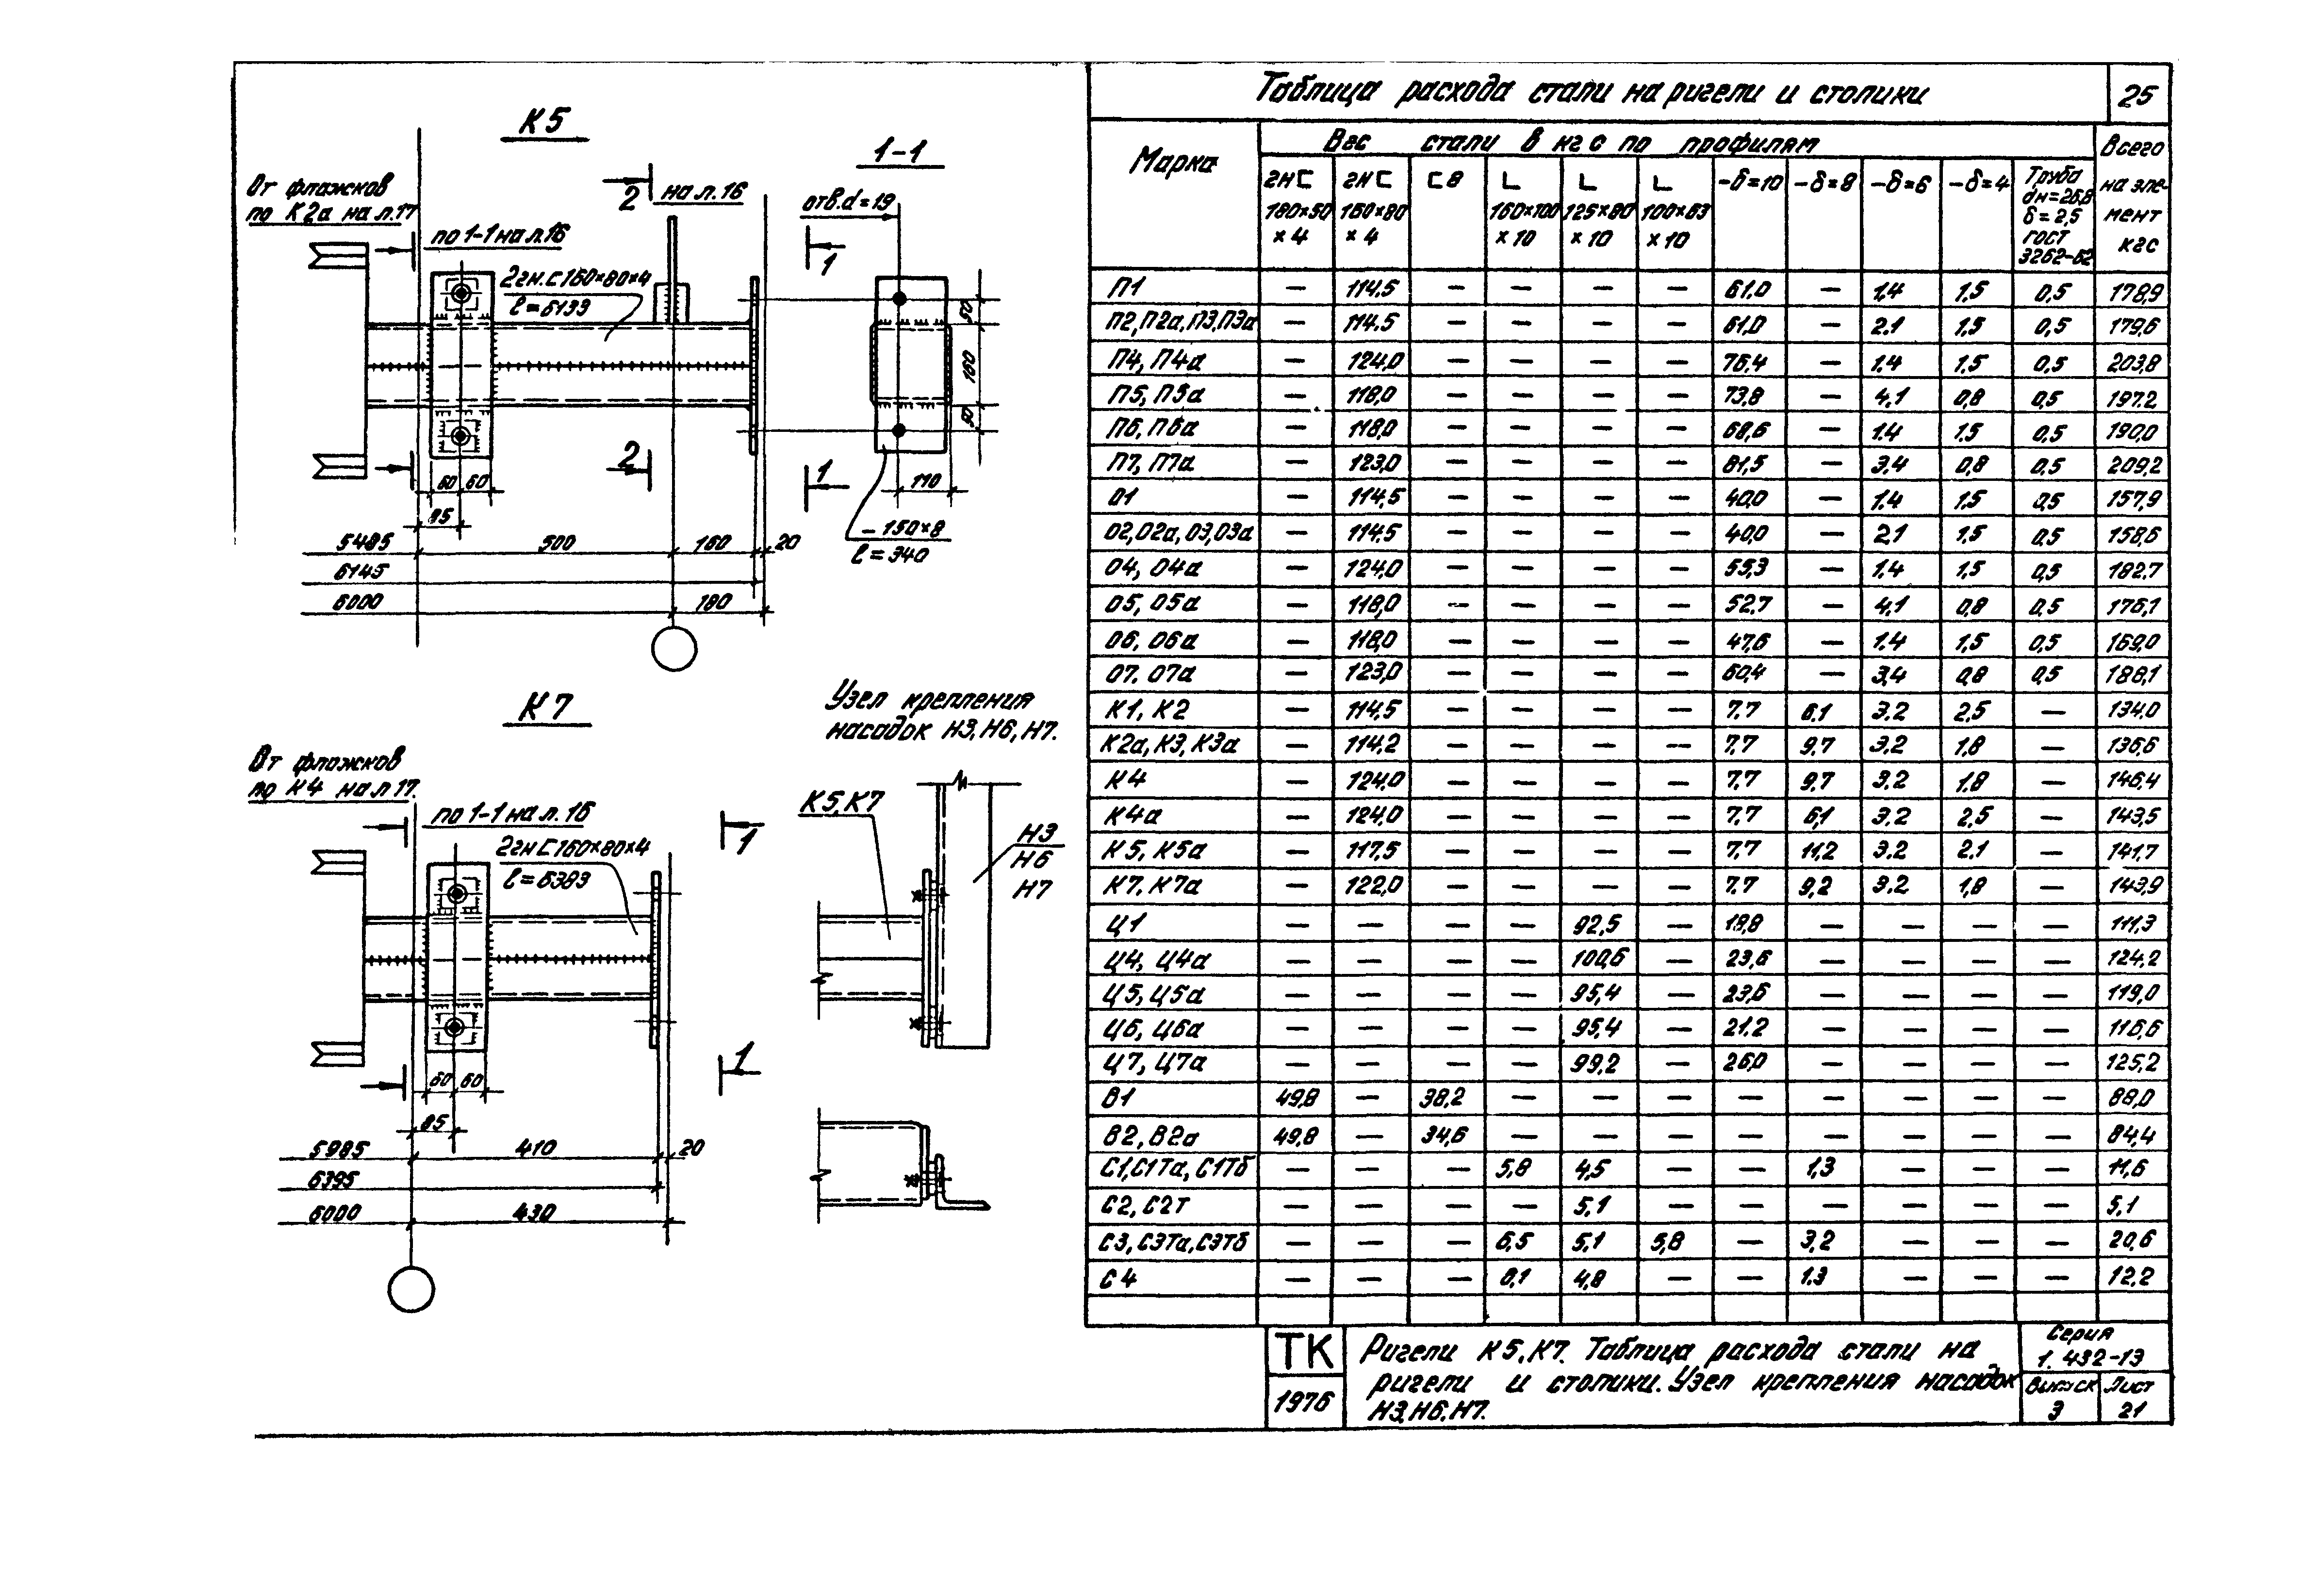 К5
От флажков
по К2а на л.17
по 1-1 на л.16
2
на л.16
1-1
отв.d=19
1
2гн.С160×80×4
ℓ=6133
50
160
50
2
1
60 60
110
85
-150×8
ℓ=340
5485 500 160 20
6145
6000 180
К7
От флажков
по К4 на л 17.
по 1-1 на л. 16
2гн С160×80×4
ℓ=6383
1
1
60 60
85
5985 410 20
6395
6000 430
Узел крепления
насадок Н3, Н6, Н7.
К5, К7
Н3
Н6
Н7
Таблица расхода стали на ригели и столики 25
Марка
Вес стали в кгс по профилям
Всего на элемент кгс
гн С 180×50 ×4
гн С 160×80 ×4
С 8
L 160×100 ×10
L 125×80 ×10
L 100×63 ×10
-δ=10
-δ=8
-δ=6
-δ=4
Труба dн=26,8 δ=2,5 гост 3262-62
П1 — 114,5 — — — — 61,0 — 1,4 1,5 0,5 178,9
П2, П2а, П3, П3а — 114.5 — — — — 61,0 — 2.1 1,5 0,5 179,6
П4, П4а — 124,0 — — — — 76,4 — 1.4 1.5 0,5 203,8
П5, П5а — 118,0 — — — — 73,8 — 4.1 0,8 0,5 197.2
П6, П6а — 118,0 — — — — 68,6 — 1.4 1.5 0,5 190,0
П7, П7а — 123,0 — — — — 81,5 — 3.4 0,8 0,5 209,2
О1 — 114,5 — — — — 40,0 — 1.4 1,5 0,5 157,9
О2, О2а, О3, О3а — 114.5 — — — — 40,0 — 2.1 1,5 0,5 158,6
О4, О4а — 124,0 — — — — 55,3 — 1.4 1,5 0,5 182.7
О5, О5а — 118,0 — — — — 52.7 — 4.1 0,8 0,5 176,1
О6, О6а — 118,0 — — — — 47,6 — 1.4 1,5 0,5 169,0
О7. О7а — 123,0 — — — — 60,4 — 3,4 0,8 0,5 188,1
К1, К2 — 114,5 — — — — 7.7 6.1 3.2 2,5 — 134,0
К2а, К3, К3а — 114,2 — — — — 7,7 9.7 3.2 1,8 — 136,6
К4 — 124,0 — — — — 7.7 9,7 3.2 1.8 — 146,4
К4а — 124,0 — — — — 7.7 6,1 3.2 2,5 — 143,5
К5, К5а — 117,5 — — — — 7.7 11,2 3.2 2.1 — 141,7
К7. К7а — 122,0 — — — — 7.7 9,2 3.2 1,8 — 143,9
Ц1 — — — — 92,5 — 18,8 — — — — 111,3
Ц4, Ц4а — — — — 100,6 — 23,6 — — — — 124,2
Ц5, Ц5а — — — — 95,4 — 23,6 — — — — 119,0
Ц6, Ц6а — — — — 95,4 — 21.2 — — — — 116,6
Ц7, Ц7а — — — — 99,2 — 26,0 — — — — 125,2
В1 49,8 — 38,2 — — — — — — — — 88,0
В2, В2а 49,8 — 34,6 — — — — — — — — 84,4
С1, С1Та, С1Тб — — — 5,8 4,5 — — 1,3 — — — 11,6
С2, С2т — — — — 5,1 — — — — — — 5,1
С3, С3Та, С3Тб — — — 6,5 5,1 5,8 — 3,2 — — — 20,6
С4 — — — 6,1 4,8 — — 1.3 — — — 12,2
ТК
1976
Ригели К5, К7. Таблица расхода стали на
ригели и столики. Узел крепления насадок
Н3, Н6, Н7.
Серия
1. 432-13
Выпуск Лист
3 21